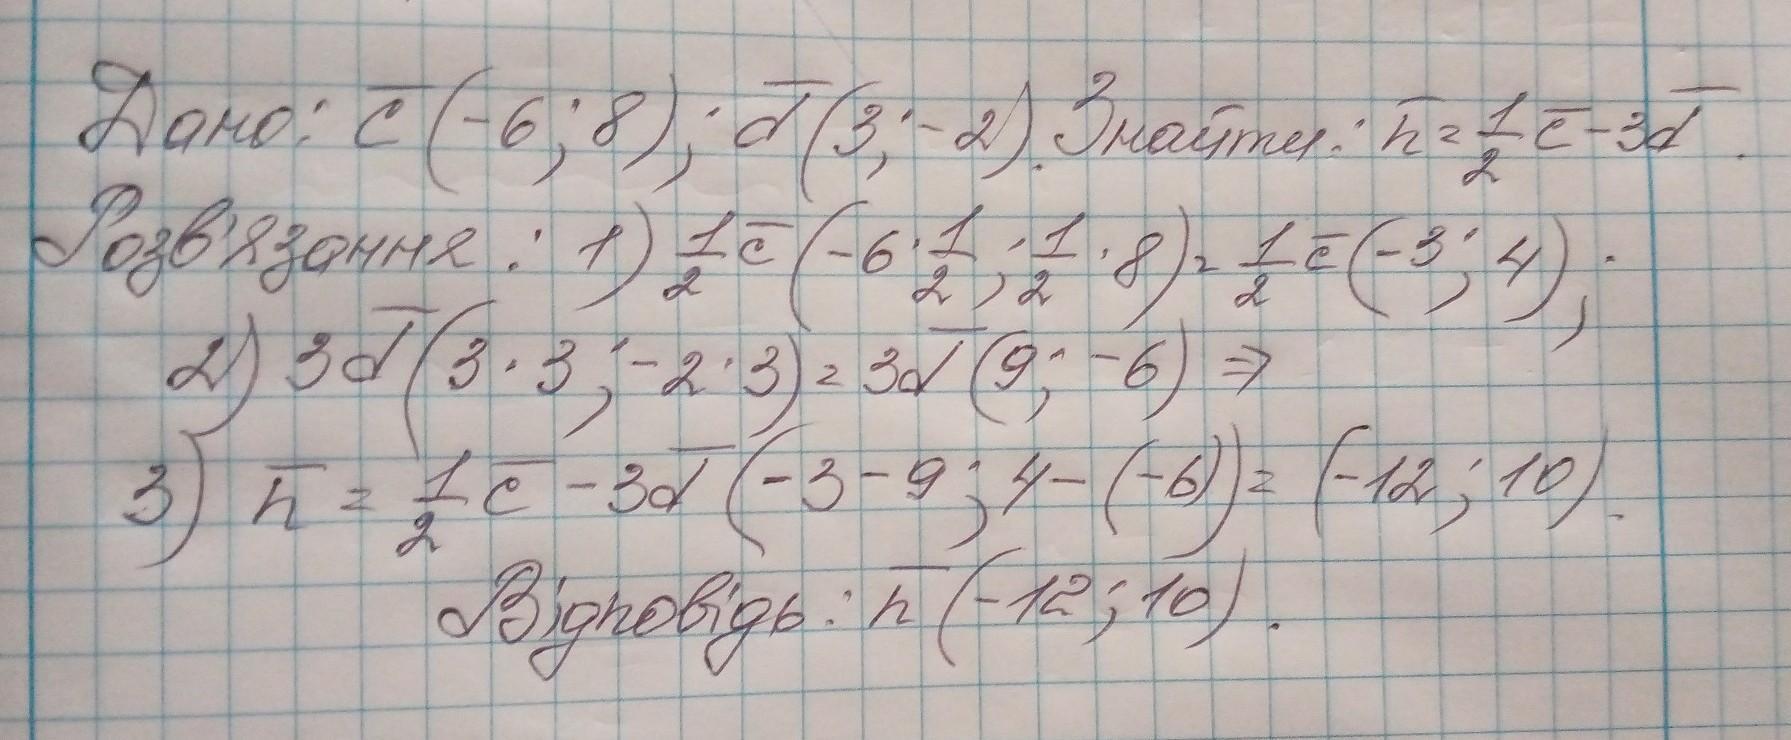 Дано: c̅ (-6; 8); d̅ (3; -2). Знайти: n̅ = 1/2 c̅ - 3d̅.
Розв'язання: 1) 1/2 c̅ (-6 · 1/2; 1/2 · 8) = 1/2 c̅ (-3; 4);
2) 3d̅ (3 · 3; -2 · 3) = 3d̅ (9; -6) ⇒
3) n̅ = 1/2 c̅ - 3d̅ (-3 - 9; 4 - (-6)) = (-12; 10).
Відповідь: n̅ (-12; 10).